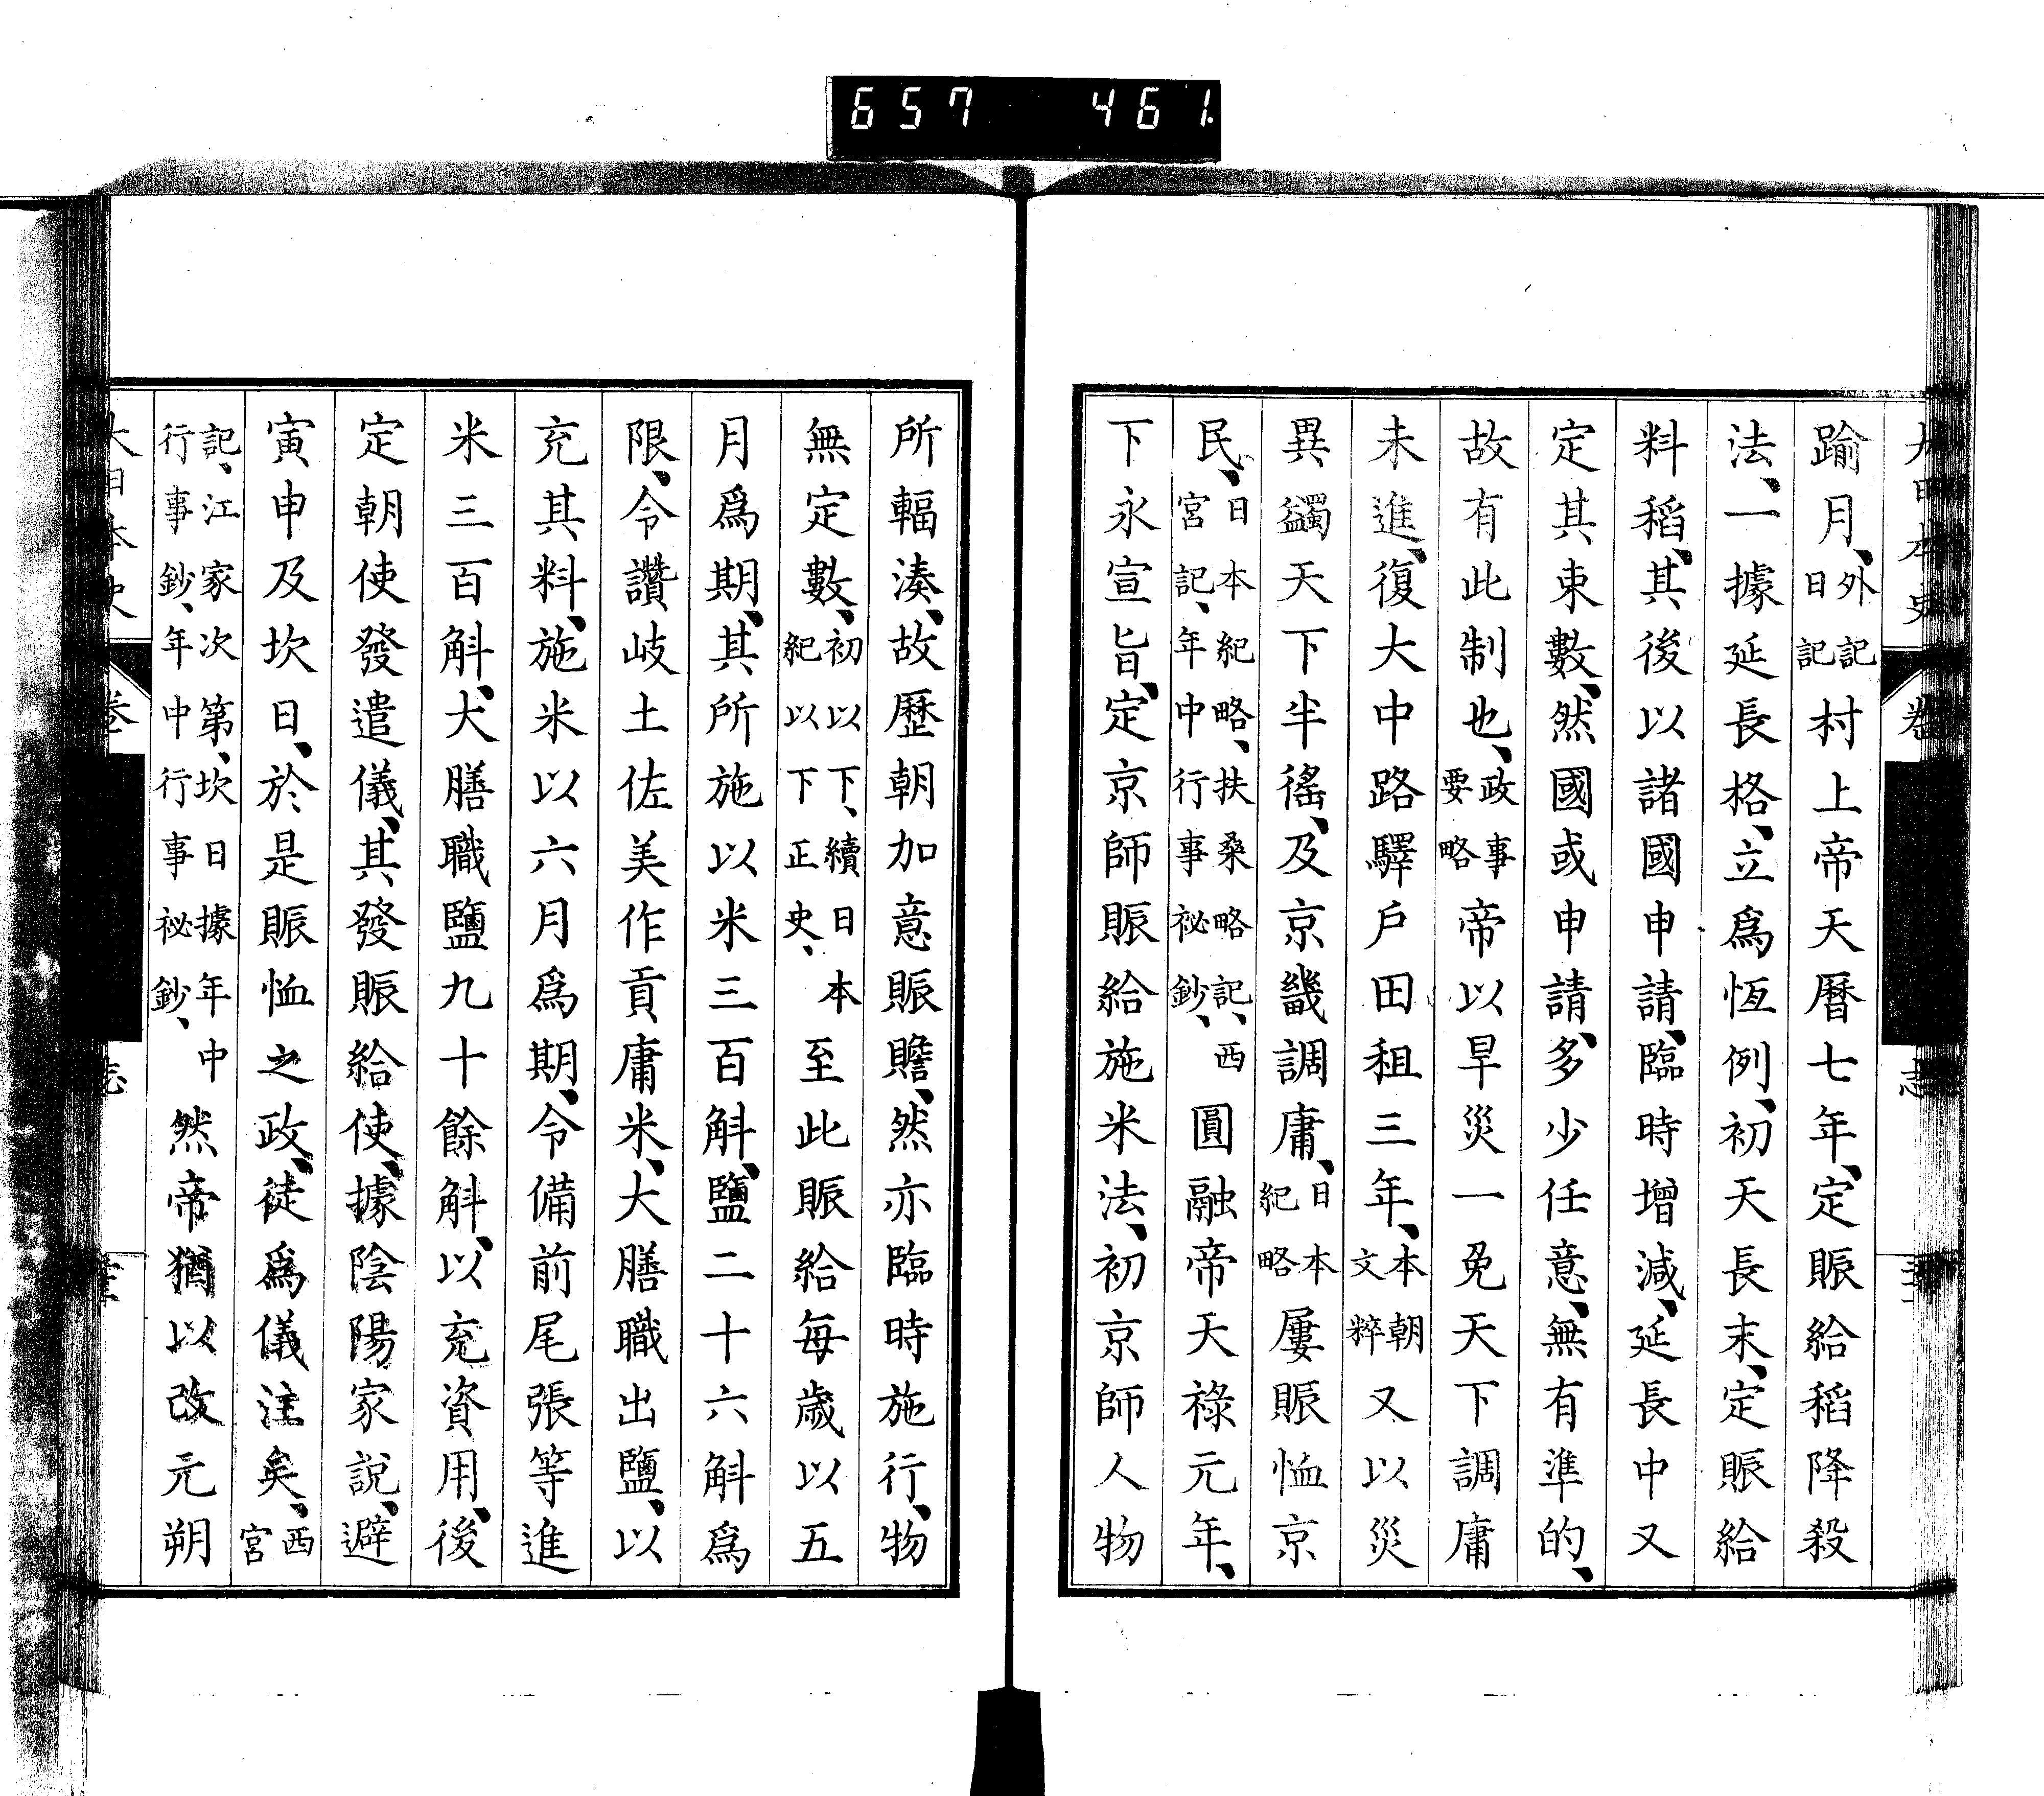 657 461
大日本史 卷 志
踰月、外記日記村上帝天曆七年、定賑給稻降殺
法、一據延長格、立爲恆例、初天長末、定賑給
料稻、其後以諸國申請、臨時增減、延長中又
定其束數、然國或申請、多少任意、無有準的、
故有此制也、政事要略帝以旱災一免天下調庸
未進、復大中路驛戶田租三年、本朝文粹又以災
異蠲天下半徭、及京畿調庸、日本紀略屢賑恤京
民、日本紀略、扶桑略記、西宮記、年中行事祕鈔、圓融帝天祿元年、
下永宣旨、定京師賑給施米法、初京師人物
所輻湊、故歷朝加意賑贍、然亦臨時施行、物
無定數、初以下、續日本紀以下正史、至此賑給每歲以五
月爲期、其所施以米三百斛、鹽二十六斛爲
限、令讚岐土佐美作貢庸米、大膳職出鹽、以
充其料、施米以六月爲期、令備前尾張等進
米三百斛、大膳職鹽九十餘斛、以充資用、後
定朝使發遣儀、其發賑給使、據陰陽家說、避
寅申及坎日、於是賑恤之政、徒爲儀注矣、西宮
記、江家次第、坎日據年中行事鈔、年中行事祕鈔、然帝猶以改元朔
大日本史 卷 志